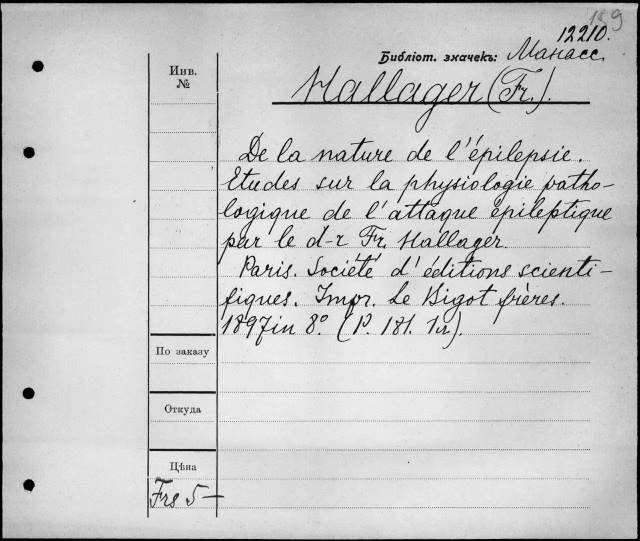 159
12210.
Библіот. значекъ: Манасс.
Инв.
№
Hallager (Fr.).
De la nature de l'épilepsie.
Etudes sur la physiologie patho-
logique de l'attaque épileptique
par le d-r Fr. Hallager.
Paris. Société d'éditions scienti-
fiques. Impr. Le Bigot frères.
1897 in 8°. (P. 181. 1 n).
По заказу
Откуда
Цѣна
Frs 5-